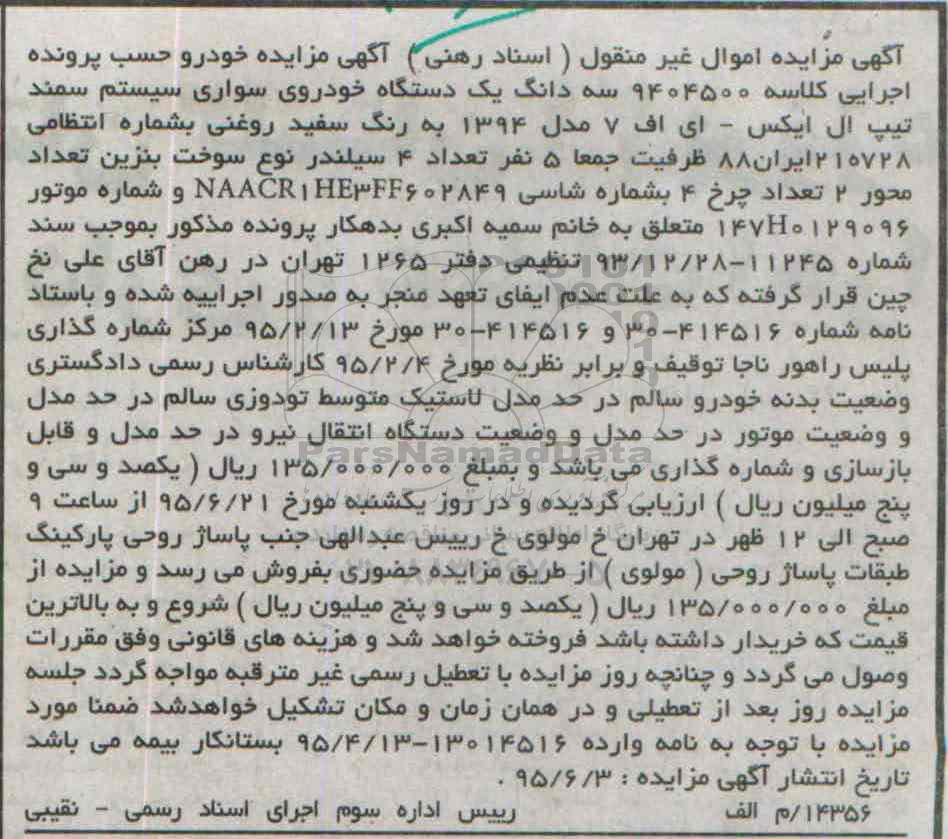 آگهی مزایده اموال غیر منقول ( اسناد رهنی ) آگهی مزایده خودرو حسب پرونده
اجرایی کلاسه ۹۴۰۴۵۰۰ سه دانگ یک دستگاه خودروی سواری سیستم سمند
تیپ ال ایکس - ای اف ۷ مدل ۱۳۹۴ به رنگ سفید روغنی بشماره انتظامی
۲۱۵۷۲۸ایران۸۸ ظرفیت جمعا ۵ نفر تعداد ۴ سیلندر نوع سوخت بنزین تعداد
محور ۲ تعداد چرخ ۴ بشماره شاسی NAACR۱HE۳FF۶۰۲۸۴۹ و شماره موتور
۱۴۷H۰۱۲۹۰۹۶ متعلق به خانم سمیه اکبری بدهکار پرونده مذکور بموجب سند
شماره ۱۱۲۴۵-۹۳/۱۲/۲۸ تنظیمی دفتر ۱۲۶۵ تهران در رهن آقای علی نخ
چین قرار گرفته که به علت عدم ایفای تعهد منجر به صدور اجراییه شده و باستاد
نامه شماره ۴۱۴۵۱۶-۳۰ و ۴۱۴۵۱۶-۳۰ مورخ ۹۵/۲/۱۳ مرکز شماره گذاری
پلیس راهور ناجا توقیف و برابر نظریه مورخ ۹۵/۲/۴ کارشناس رسمی دادگستری
وضعیت بدنه خودرو سالم در حد مدل لاستیک متوسط تودوزی سالم در حد مدل
و وضعیت موتور در حد مدل و وضعیت دستگاه انتقال نیرو در حد مدل و قابل
بازسازی و شماره گذاری می باشد و بمبلغ ۱۳۵/۰۰۰/۰۰۰ ریال ( یکصد و سی و
پنج میلیون ریال ) ارزیابی گردیده و در روز یکشنبه مورخ ۹۵/۶/۲۱ از ساعت ۹
صبح الی ۱۲ ظهر در تهران خ مولوی خ رییس عبدالهی جنب پاساژ روحی پارکینگ
طبقات پاساژ روحی ( مولوی ) از طریق مزایده حضوری بفروش می رسد و مزایده از
مبلغ ۱۳۵/۰۰۰/۰۰۰ ریال ( یکصد و سی و پنج میلیون ریال ) شروع و به بالاترین
قیمت که خریدار داشته باشد فروخته خواهد شد و هزینه های قانونی وفق مقررات
وصول می گردد و چنانچه روز مزایده با تعطیل رسمی غیر مترقبه مواجه گردد جلسه
مزایده روز بعد از تعطیلی و در همان زمان و مکان تشکیل خواهدشد ضمنا مورد
مزایده با توجه به نامه وارده ۱۳۰۱۴۵۱۶-۹۵/۴/۱۳ بستانکار بیمه می باشد
تاریخ انتشار آگهی مزایده : ۹۵/۶/۳ .
۱۴۳۵۶/م الف رییس اداره سوم اجرای اسناد رسمی - نقیبی
ParsNamadData